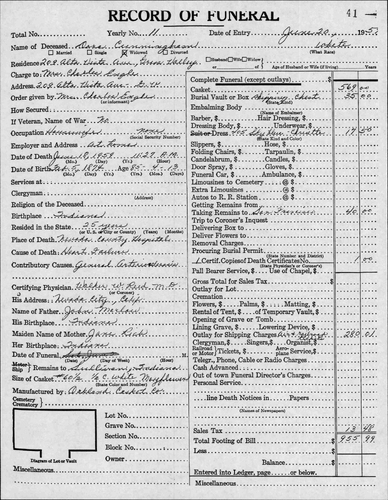 RECORD OF FUNERAL
41
Total No. Yearly No. 11 Date of Entry June 20, 195
Name of Deceased Cora Cunningham White
(What Race)
Married Single Widowed Divorced
Residence 209 Alta Vista Ave., Grass Valley
Husband Wife of
Age of Husband or Wife (if living)
Charge to Mrs. Charles
Address 209 Alta Vista Ave. G.V.
Order given by Mrs. Charles
(or informant)
How Secured
If Veteran, of War No.
Occupation Housewife None
(Social Security Number)
Employer and Address At Home
Date of Death June 18, 1957 11:27 P.M.
Date of Birth 1874 4 13
(Mo.) (Day) (Year) (Age)
Services at
Clergyman
Religion of the Deceased
Birthplace Indiana
Resided in the State 25 years
(or U.S. or City or County) (Yrs.) (Mo.)
Place of Death Nevada County Hospital
Cause of Death Heart Failure
Contributory Causes General Arteriosclerosis
Certifying Physician M.D.
His Address Nevada City, Calif.
Name of Father John
His Birthplace Indiana
Maiden Name of Mother Jane
Her Birthplace Indiana
Date of Funeral
Motor
Ship Remains to Sullivan, Indiana
Size of Casket
(State Color and Number)
Manufactured by Oakland Casket Co.
Cemetery
Crematory
Lot No.
Grave No.
Section No.
Block No.
Owner
Diagram of Lot or Vault
Miscellaneous
Complete Funeral (except outlays)
Casket 569 00
Burial Vault or Box Shipping Chest 35 00
(State Kind)
Embalming Body
(Name of Embalmer)
Barber, $ Hair Dressing, $
Dressing Body, $ Underwear, $
17 50
(State Kind and Color)
Slippers, $ Hose, $
Folding Chairs, $ Tarpaulin, $
Candelabrum, $ Candles, $
Door Spray, $ Gloves, $
Funeral Car, $ Ambulance, $
Limousines to Cemetery @ $
Extra Limousines @ $
Autos to R. R. Station @ $
Getting Remains from
Taking Remains to San Francisco 40 00
Trip to Coroner's Inquest
Delivering Box to
Deliver Flowers to
Removal Charges
Procuring Burial Permit
(State Number and District)
1 Certif. Copies of Death Certificates No. 1 00
Pall Bearer Service, $ Use of Chapel, $
Gross Total for Sales Tax $
Outlay for Lot
Cremation
Flowers, $ Palms, $ Matting, $
Rental of Tent, $ of Temporary Vault, $
Opening of Grave or Tomb
Lining Grave, $ Lowering Device, $
Outlay for Shipping Charges 280 01
Clergyman, $ Singers, $ Organist, $
Railroad
or Motor Tickets, $ place Service, $
Telegr., Phone, Cable or Radio Charges
Cash Advanced
Out of own Funeral Director's Charges
Personal Service
line Death Notices in Papers
(Names of Newspapers)
Sales Tax 13 48
Total Footing of Bill $ 955 99
Less
Balance $
Entered into Ledger, page or below.
Miscellaneous: